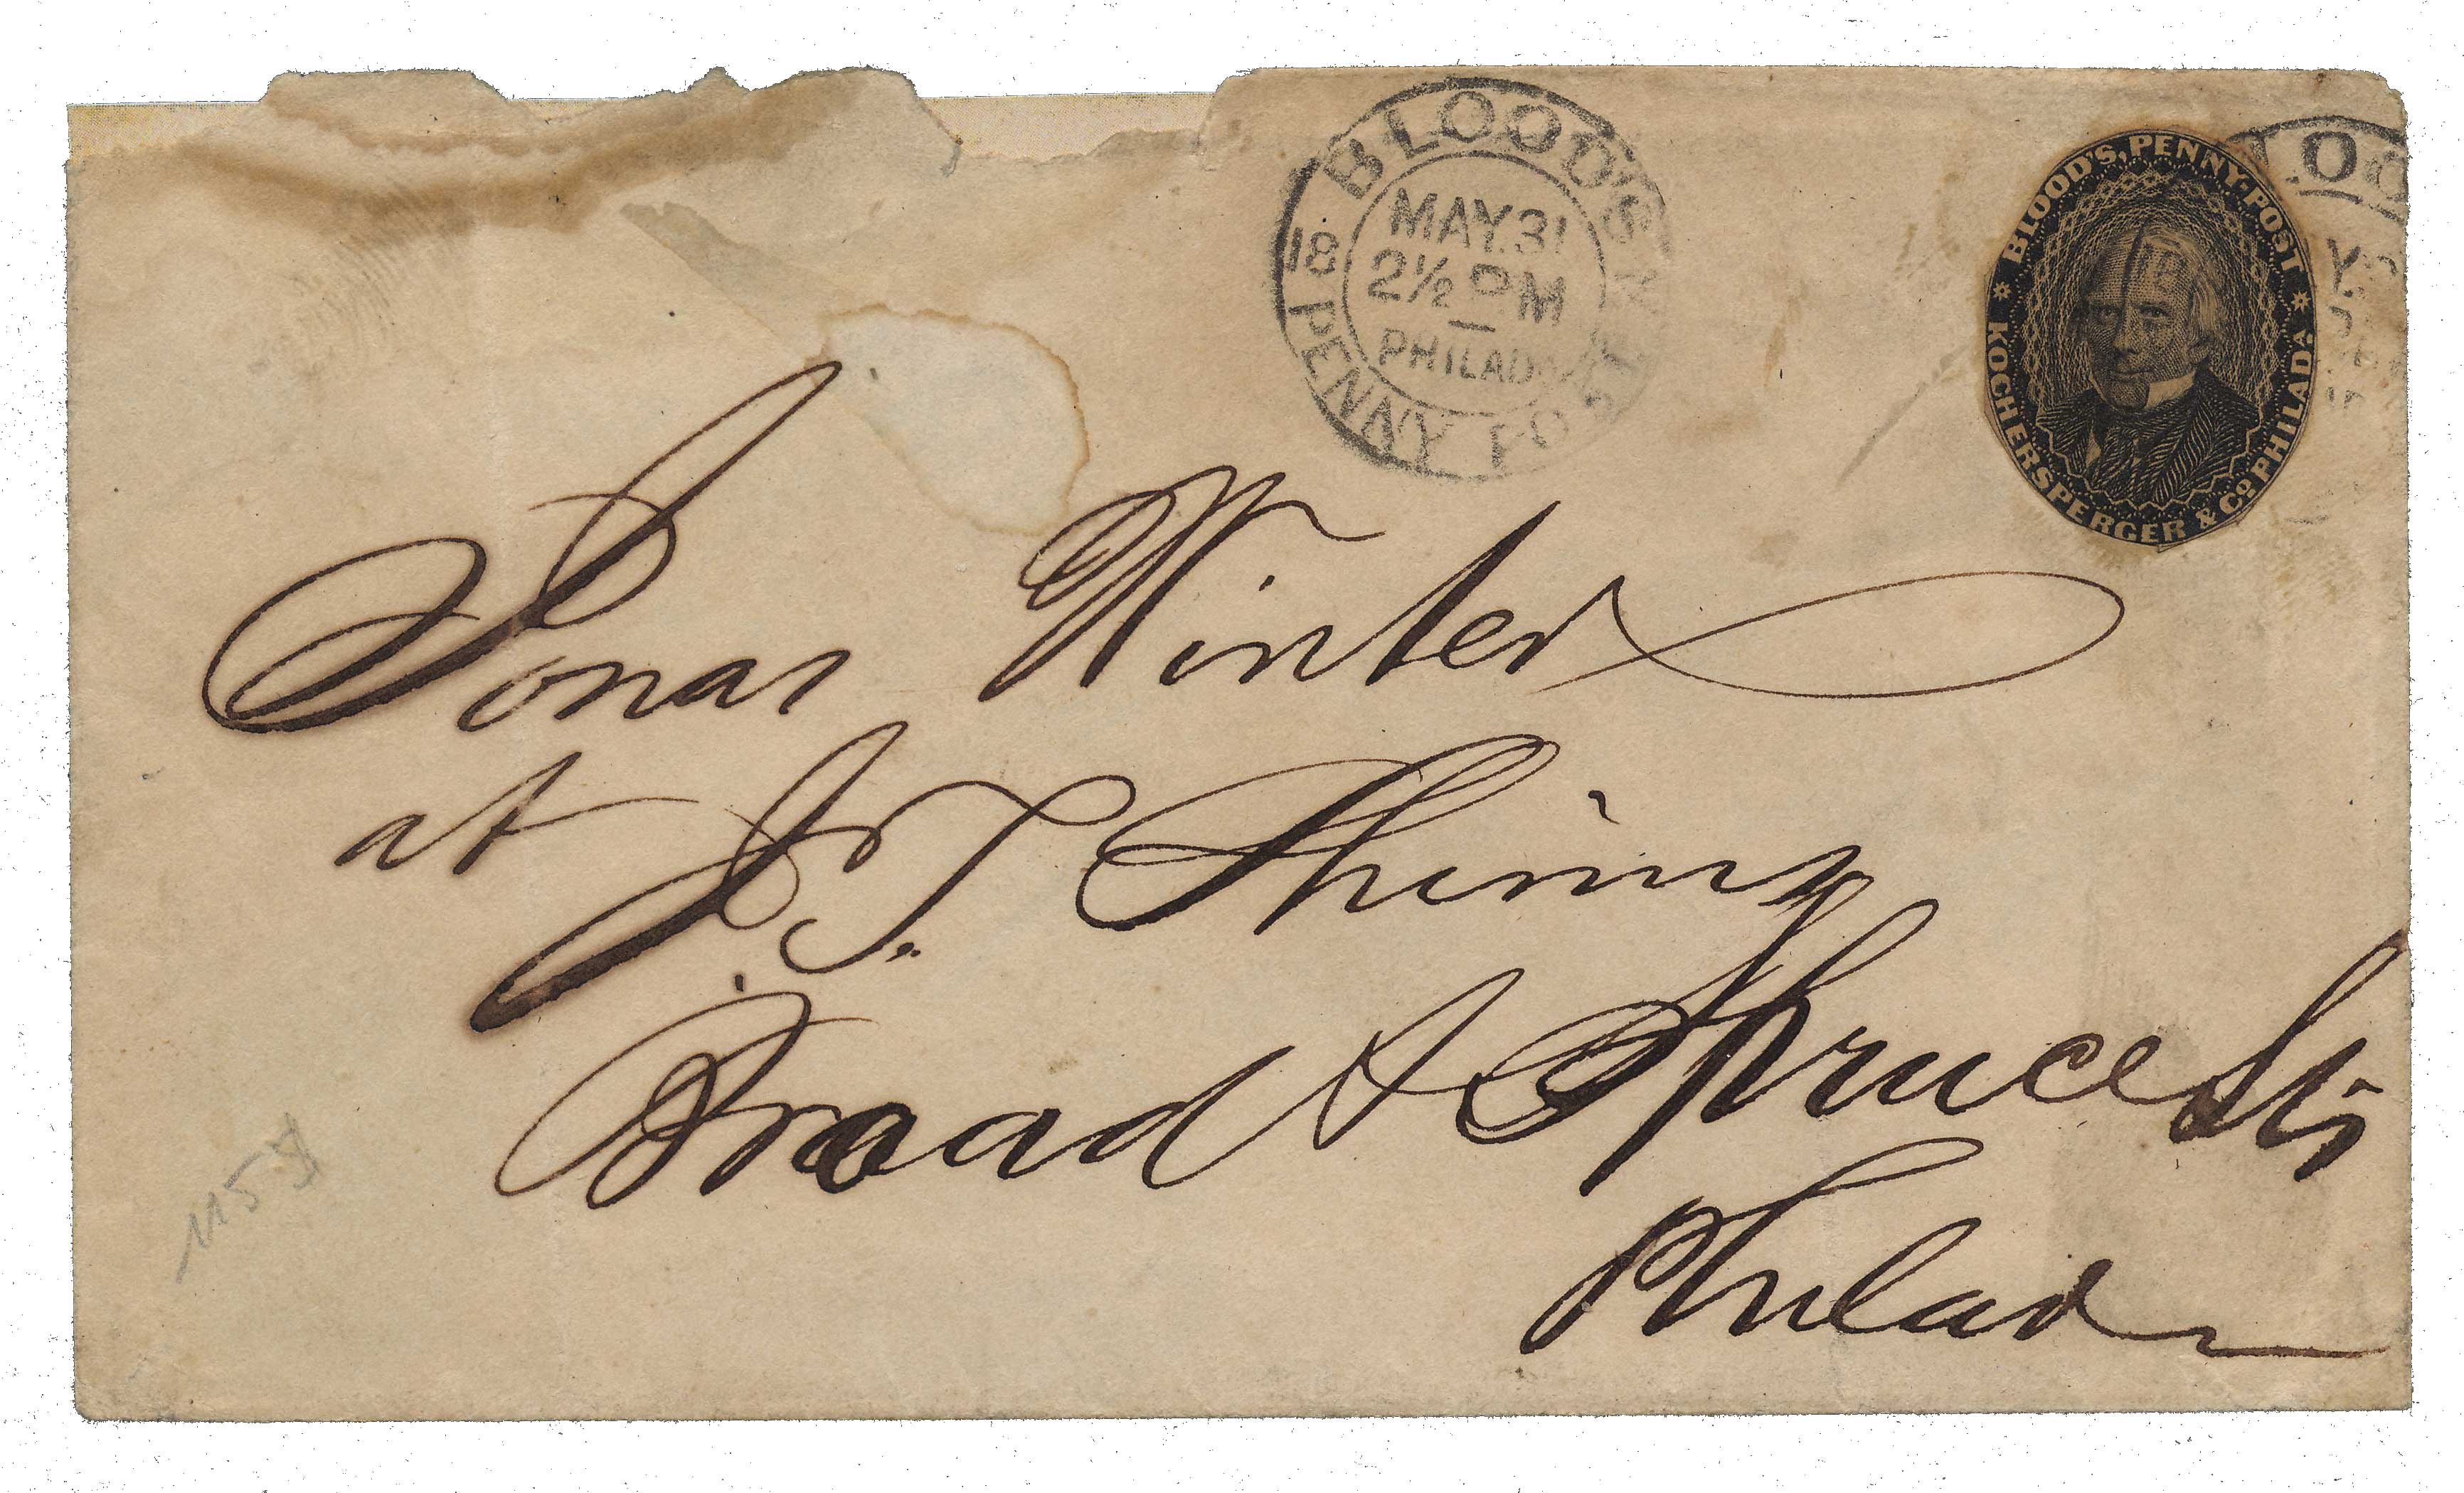 BLOOD'S PENNY POST
18
MAY 31
2½ PM
PHILAD
BLOOD'S, PENNY-POST
* KOCHERSPERGER & Co PHILADA *
LOO
Jonas Winter
at J. T. Thiring
Broad & Spruce Sts
Philad
1153